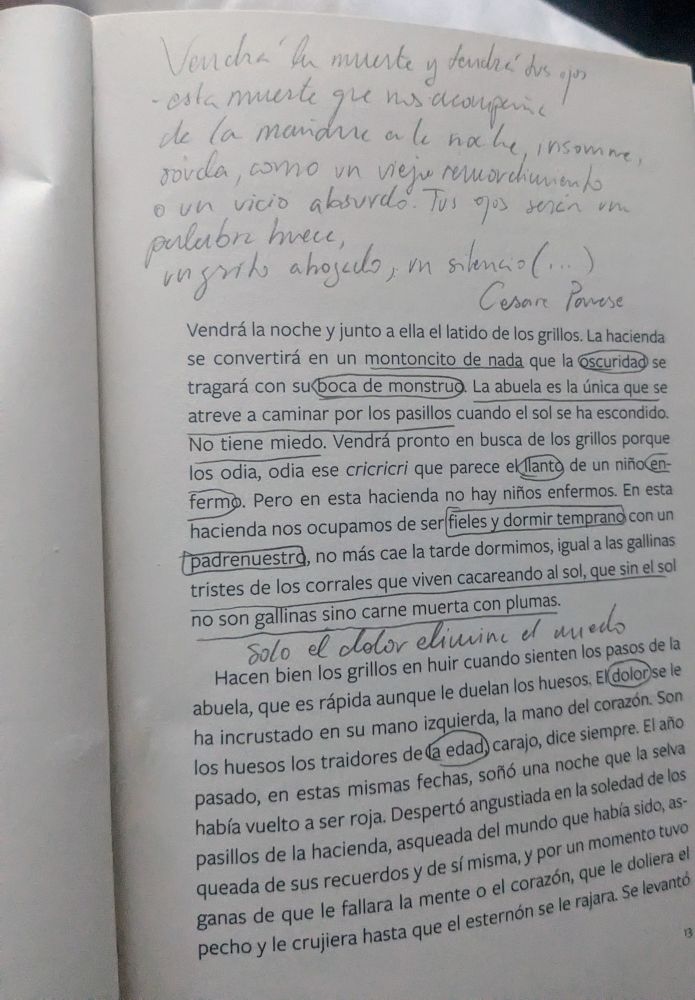 Vendrá la muerte y tendrá tus ojos
- esta muerte que nos acompaña
de la mañana a la noche, insomne,
sorda, como un viejo remordimiento
o un vicio absurdo. Tus ojos serán una
palabra hueca,
un grito ahogado, un silencio (...)
Cesare Pavese
Vendrá la noche y junto a ella el latido de los grillos. La hacienda
se convertirá en un montoncito de nada que la oscuridad se
tragará con su boca de monstruo. La abuela es la única que se
atreve a caminar por los pasillos cuando el sol se ha escondido.
No tiene miedo. Vendrá pronto en busca de los grillos porque
los odia, odia ese cricricri que parece el llanto de un niño en-
fermo. Pero en esta hacienda no hay niños enfermos. En esta
hacienda nos ocupamos de ser fieles y dormir temprano con un
padrenuestro, no más cae la tarde dormimos, igual a las gallinas
tristes de los corrales que viven cacareando al sol, que sin el sol
no son gallinas sino carne muerta con plumas.
Solo el dolor elimina el miedo
Hacen bien los grillos en huir cuando sienten los pasos de la
abuela, que es rápida aunque le duelan los huesos. El dolor se le
ha incrustado en su mano izquierda, la mano del corazón. Son
los huesos los traidores de la edad, carajo, dice siempre. El año
pasado, en estas mismas fechas, soñó una noche que la selva
había vuelto a ser roja. Despertó angustiada en la soledad de los
pasillos de la hacienda, asqueada del mundo que había sido, as-
queada de sus recuerdos y de sí misma, y por un momento tuvo
ganas de que le fallara la mente o el corazón, que le doliera el
pecho y le crujiera hasta que el esternón se le rajara. Se levantó
13